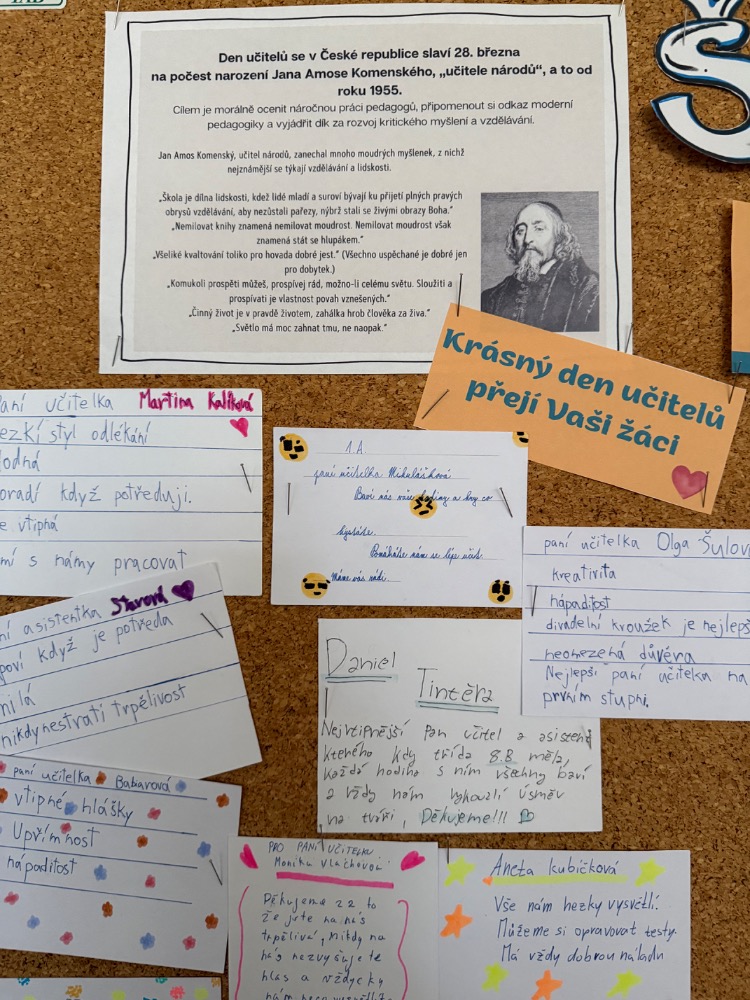 Den učitelů se v České republice slaví 28. března
na počest narození Jana Amose Komenského, „učitele národů“, a to od
roku 1955.
Cílem je morálně ocenit náročnou práci pedagogů, připomenout si odkaz moderní
pedagogiky a vyjádřit dík za rozvoj kritického myšlení a vzdělávání.
Jan Amos Komenský, učitel národů, zanechal mnoho moudrých myšlenek, z nichž
nejznámější se týkají vzdělávání a lidskosti.
„Škola je dílna lidskosti, kdež lidé mladí a suroví bývají ku přijetí plných pravých
obrysů vzdělávání, aby nezůstali pařezy, nýbrž stali se živými obrazy Boha.“
„Nemilovat knihy znamená nemilovat moudrost. Nemilovat moudrost však
znamená stát se hlupákem.“
„Všeliké kvaltování toliko pro hovada dobré jest.“ (Všechno uspěchané je dobré jen
pro dobytek.)
„Komukoli prospěti můžeš, prospívej rád, možno-li celému světu. Sloužiti a
prospívati je vlastnost povah vznešených.“
„Činný život je v pravdě životem, zahálka hrob člověka za živa.“
„Světlo má moc zahnat tmu, ne naopak.“
Krásný den učitelů
přejí Vaši žáci
učitelka Martina Kalíková
styl odlékání
když potředuji.
vtipná
s námy pracovat
1.A.
paní učitelka Mikulášková
Baví nás vaše hodiny a hry co
hystáte.
Pomáháte nám se lépe učit.
Máme vás rádi.
paní učitelka Olga
kreativita
nápaditost
divadelní kroužek je
neomezená důvěra
Nejlepší paní učitelka na
prvním stupni.
asistentka
když je potředa
nikdy nestratí trpělivost
Daniel
Tintěra
Nejvtipnější pan učitel a asistent
kterého kdy třída 8.B měla,
každá hodina s ním všechny baví
a vždy nám vykouzlí úsměv
na tváři, Děkujeme!!!
paní učitelka Babiarová
vtipné hlášky
Upřímnost
nápaditost
PRO PANÍ UČITELKU
Moniku Vlachovou
Děkujeme za to
že jste na nás
trpělivá, nikdy na
nás nezvyšujete
hlas a vždycky
nám
Aneta Kubičková
Vše nám hezky vysvětlí.
Můžeme si opravovat testy.
Má vždy dobrou náladu